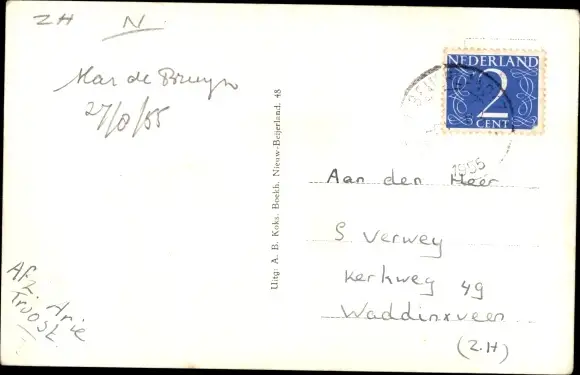 ZH N.
Mar de Bruyn
27/8/55
Afz. Arie
Troost.
Uitg: A. B. Koks. Boekh. Nieuw-Beijerland. 48
NEDERLAND
2
CENT
1955
Aan den Heer
S Verwey
Kerkweg 49
Waddinxveen
(Z.H)